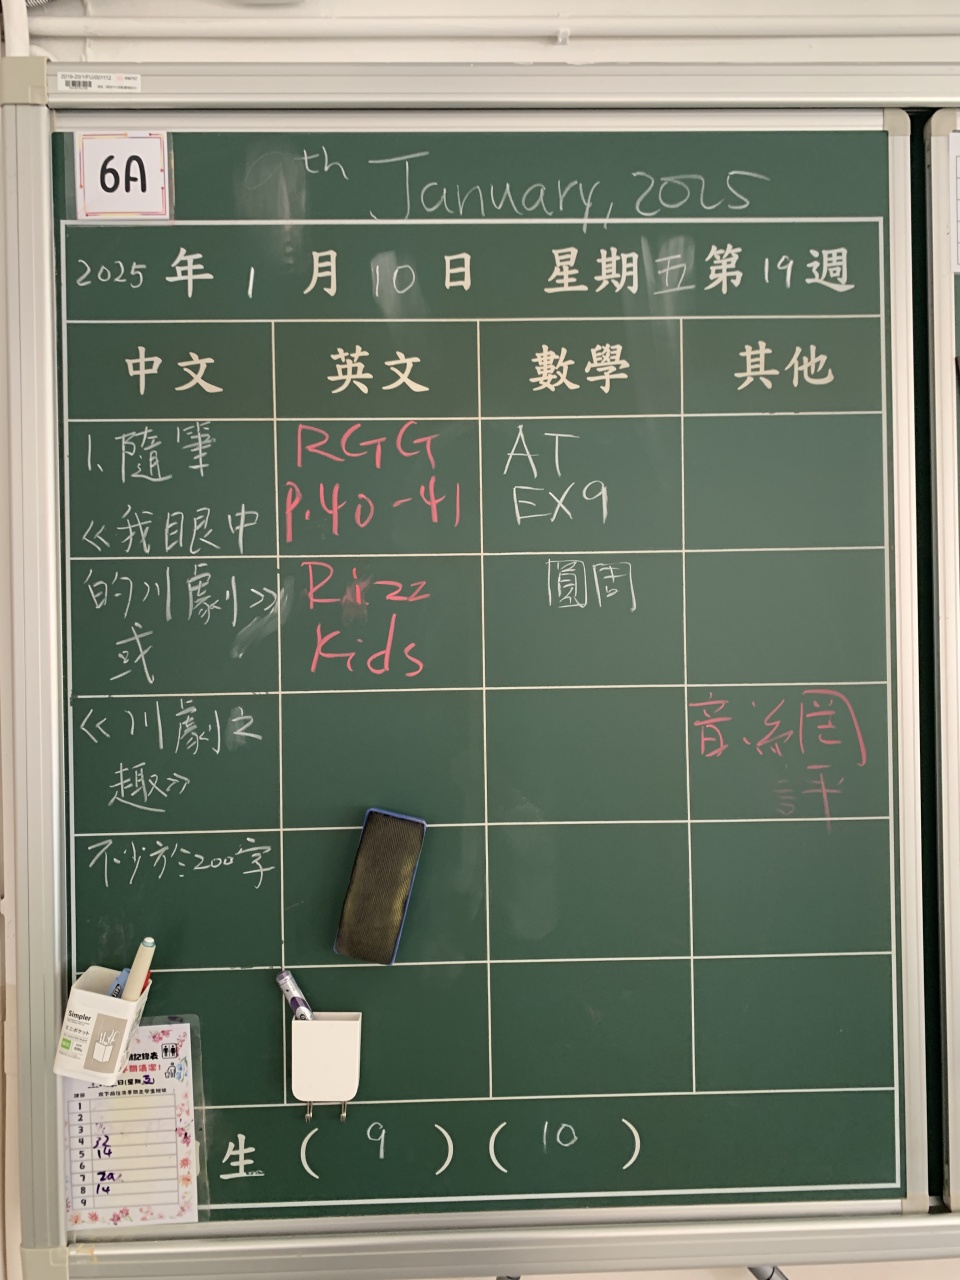 6A
9th January, 2025
2025 年 1 月 10 日 星期五第 19 週
中文 英文 數學 其他
1. 隨筆
《我眼中
的川劇》
或
《川劇之
趣》
不少於200字
RGG
P.40-41
Rizz
Kids
AT
EX9
圓周
音.網
評
生 ( 9 ) ( 10 )
Simpler
記錄表
1
2
3
4 32
5 14
6
7
8 14
9